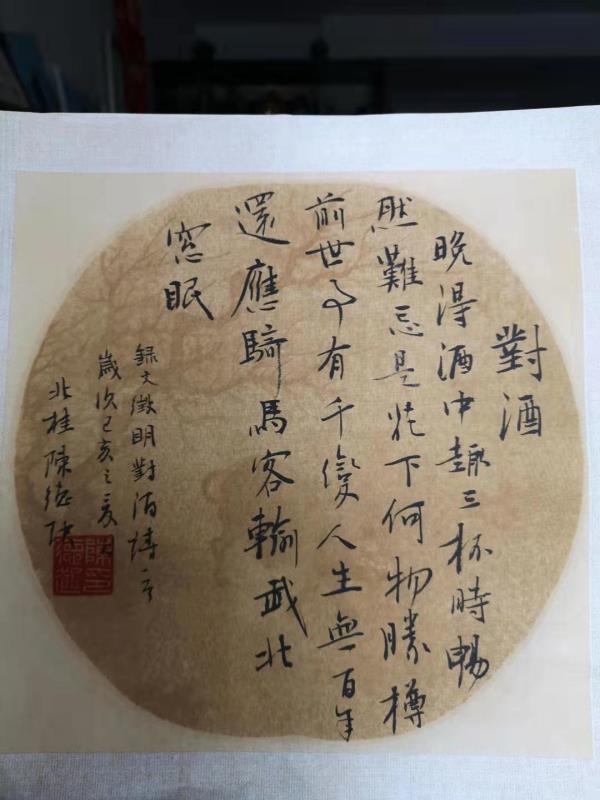 對酒
晚得酒中趣三杯時暢
然難忘是花下何物勝樽
前世事有千變人生無百年
還應騎馬客輸我北
窓眠
錄文徵明對酒詩一首
歲次己亥之夏
北桂陳德